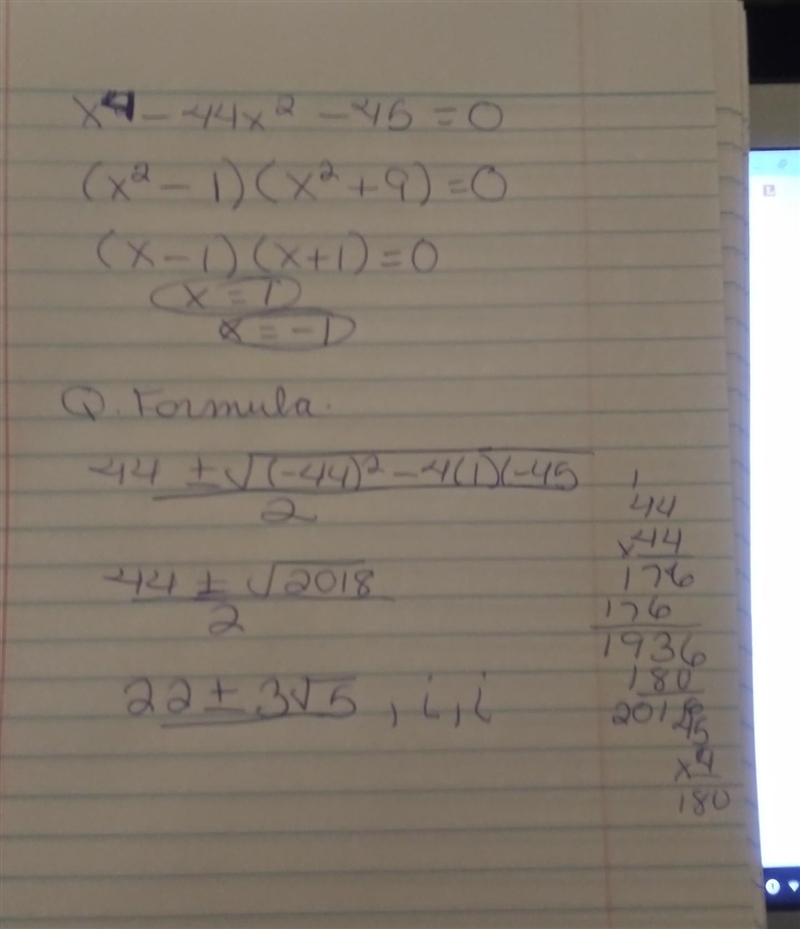 x⁴ - 44x² - 45 = 0
(x² - 1)(x² + 9) = 0
(x - 1)(x + 1) = 0
x = 1
x = -1
Q. Formula.
44 ± √(-44)² - 4(1)(-45
2
44 ± √2018
2
22 ± 3√5 , i, i
1
44
x44
176
176
1936
180
2018
45
x4
180